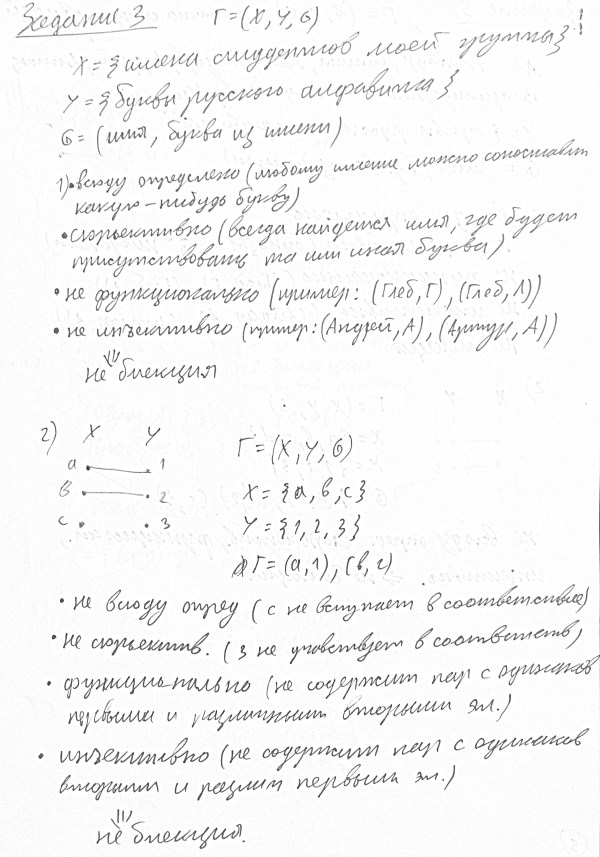 Задание 3 Г=(X,Y,G)
X={имена студентов моей группы}
Y={буквы русского алфавита}
G=(имя, буква из имени)
1)•всюду определено (любому имени можно сопоставить
какую-нибудь букву)
•сюръективно (всегда найдется имя, где будет
присутствовать та или иная буква).
•не функционально (пример: (Глеб,Г),(Глеб,Л))
•не инъективно (пример:(Андрей,А),(Артур,А))
не биекция
2) X Y Г=(X,Y,G)
a 1 X={a,b,c}
b 2 Y={1,2,3}
c 3 Г=(a,1),(b,2)
•не всюду опред (с не вступает в соответствие)
•не сюръектив. (3 не участвует в соответств)
•функционально (не содержит пар с одинаков
первыми и различными вторыми эл.)
•инъективно (не содержит пар с одинаков
вторыми и различ первыми эл.)
не биекция.